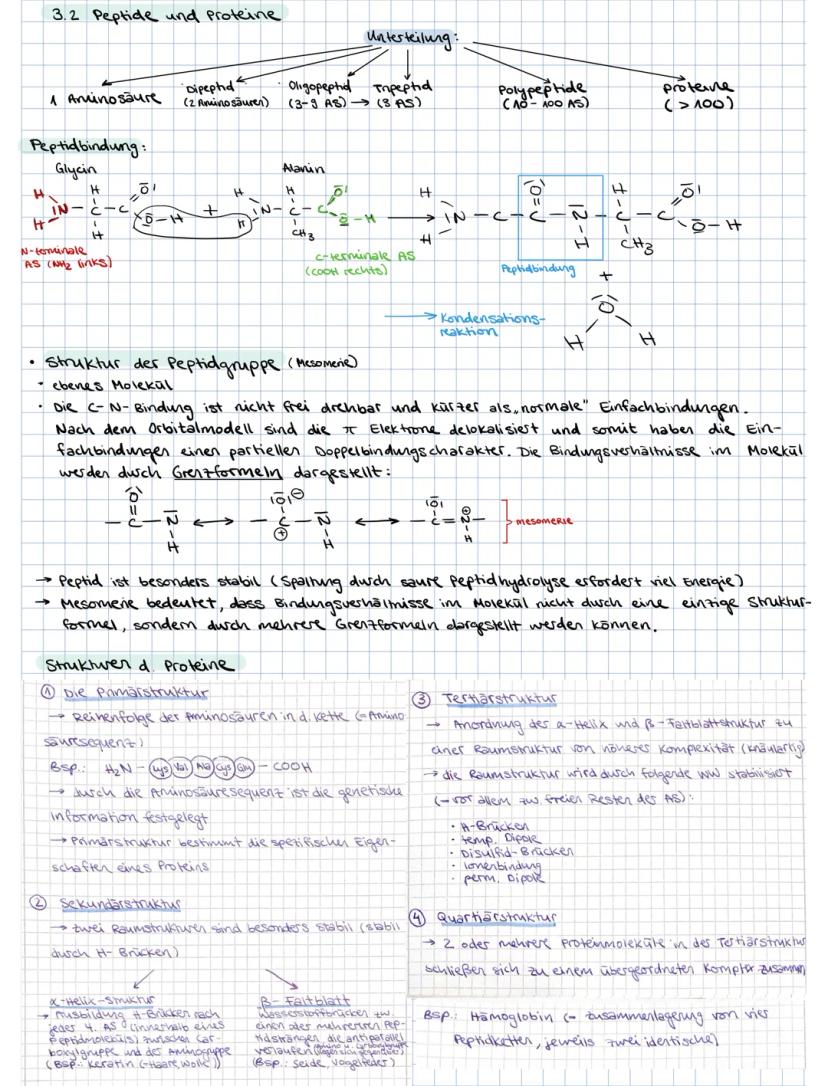 3.2 Peptide und Proteine
Unterteilung:
1 Aminosäure
Dipeptid
(2 Aminosäuren)
Oligopeptid
(3-9 AS)
→
Tripeptid
(3 AS)
Polypeptide
(10 - 100 AS)
Proteine
(>100)
Peptidbindung:
Glycin
Alanin
N-terminale
AS (NH₂ links)
C-terminale AS
(COOH rechts)
Peptidbindung
→ Kondensations-
reaktion
• Struktur der Peptidgruppe (Mesomerie)
• ebenes Molekül
• Die C-N-Bindung ist nicht frei drehbar und kürzer als „normale" Einfachbindungen.
Nach dem Orbitalmodell sind die π Elektrone delokalisiert und somit haben die Ein-
fachbindungen einen partiellen Doppelbindungscharakter. Die Bindungsverhältnisse im Molekül
werden durch Grenzformeln dargestellt:
mesomerie
→ Peptid ist besonders stabil (Spaltung durch saure Peptidhydrolyse erfordert viel Energie)
→ Mesomerie bedeutet, dass Bindungsverhältnisse im Molekül nicht durch eine einzige Struktur-
formel, sondern durch mehrere Grenzformeln dargestellt werden können.
Strukturen d. Proteine
① Die Primärstruktur
→ Reihenfolge der Aminosäuren in d. Kette (=Amino
säuresequenz)
Bsp.: H₂N - Lys Val Ala Cys Gln - COOH
→ durch die Aminosäuresequenz ist die genetische
Information festgelegt
→ Primärstruktur bestimmt die spezifischen Eigen-
schaften eines Proteins
② Sekundärstruktur
→ zwei Raumstrukturen sind besonders stabil (stabil
durch H- Brücken)
α-Helix-Struktur
→ Ausbildung H-Brücken nach
jeder 4. AS (innerhalb eines
Peptidmoleküls) zwischen Car-
boxylgruppe und der Aminogruppe
(Bsp.: Keratin (-Haare, Wolle))
β- Faltblatt
Wasserstoffbrücken zw.
einen oder mehreren Pep-
tidsträngen die antiparallel
verlaufen
(Bsp.: Seide, Vogelfeder)
③ Tertiärstruktur
→ Anordnung der α-Helix und β-Faltblattstruktur zu
einer Raumstruktur von höherer Komplexität (knäuelartig)
→ die Raumstruktur wird durch folgende WW stabilisiert
(→ vor allem zw. freien Resten der AS):
• H-Brücken
• temp. Dipole
• Disulfid-Brücken
• Ionenbindung
• perm. Dipole
④ Quartiärstruktur
→ 2 oder mehrere Proteinmoleküle in der Tertiärstruktur
schließen sich zu einem übergeordneten Komplex zusammen
Bsp.: Hämoglobin (- Zusammenlagerung von vier
Peptidketten, jeweils zwei identische)